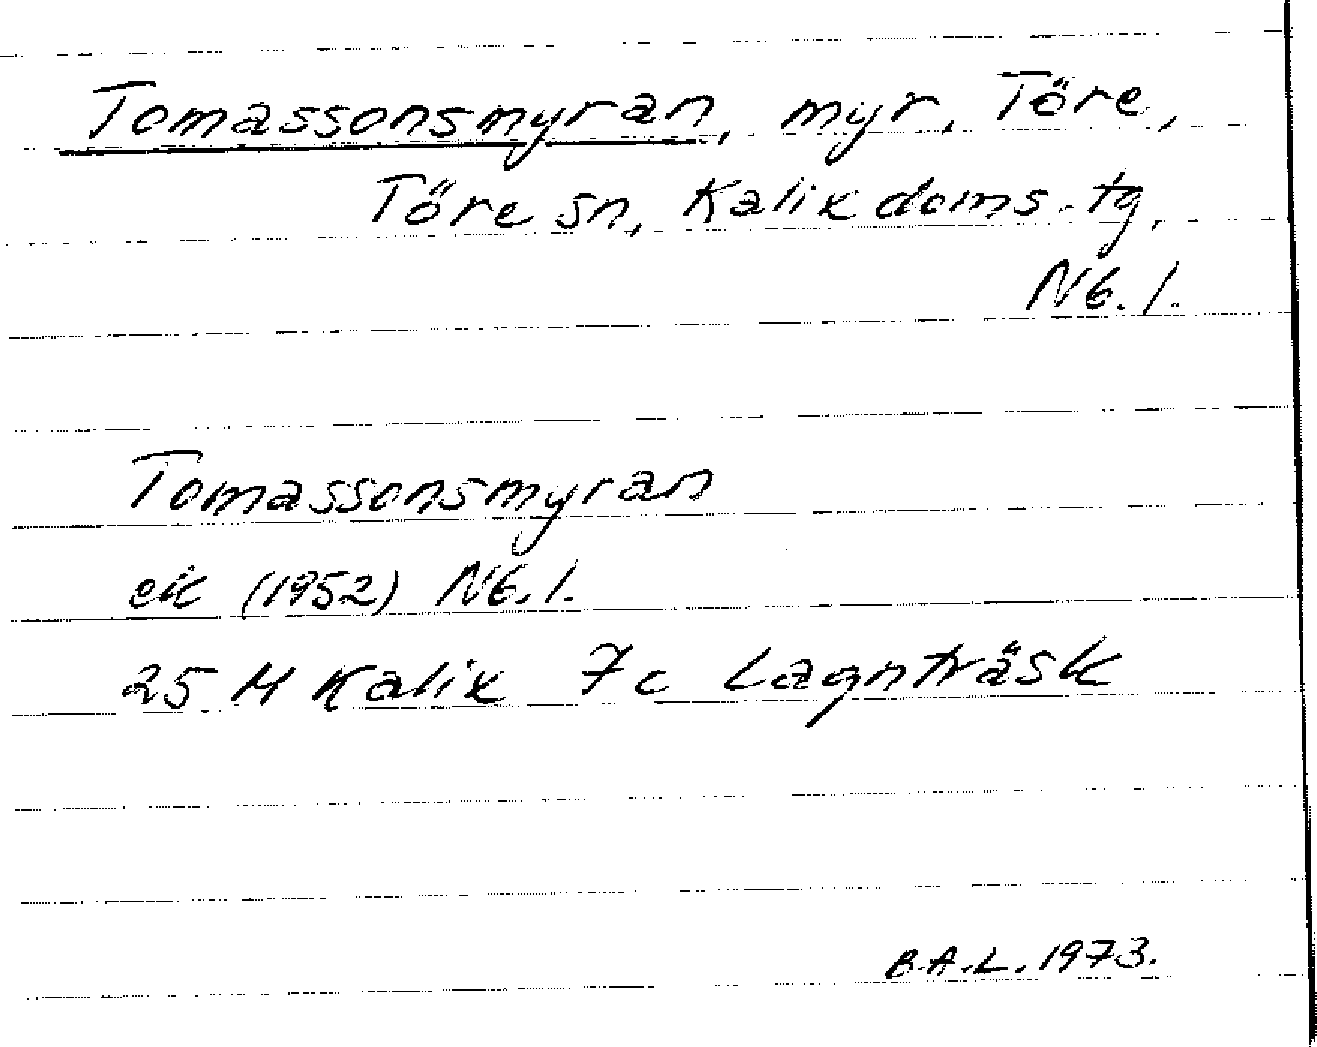 Tomassonsmyran, myr, Töre,
Töre sn, Kalix doms. tg,
Nb. l.
Tomassonsmyran
ek (1952) Nb. l.
25 M Kalix 7c Lagnträsk
B.A.L. 1973.